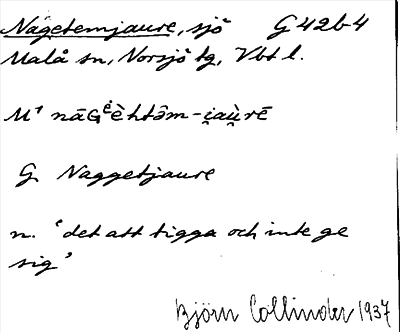 Nágetemjaure, sjö G42b4
Malå sn, Norsjö tg, Vbt l.
M¹ nāGėèhtəm-i̯au̯rē
G. Naggetjaure
n. 'det att tigga och inte ge
sig'
Björn Collinder 1937